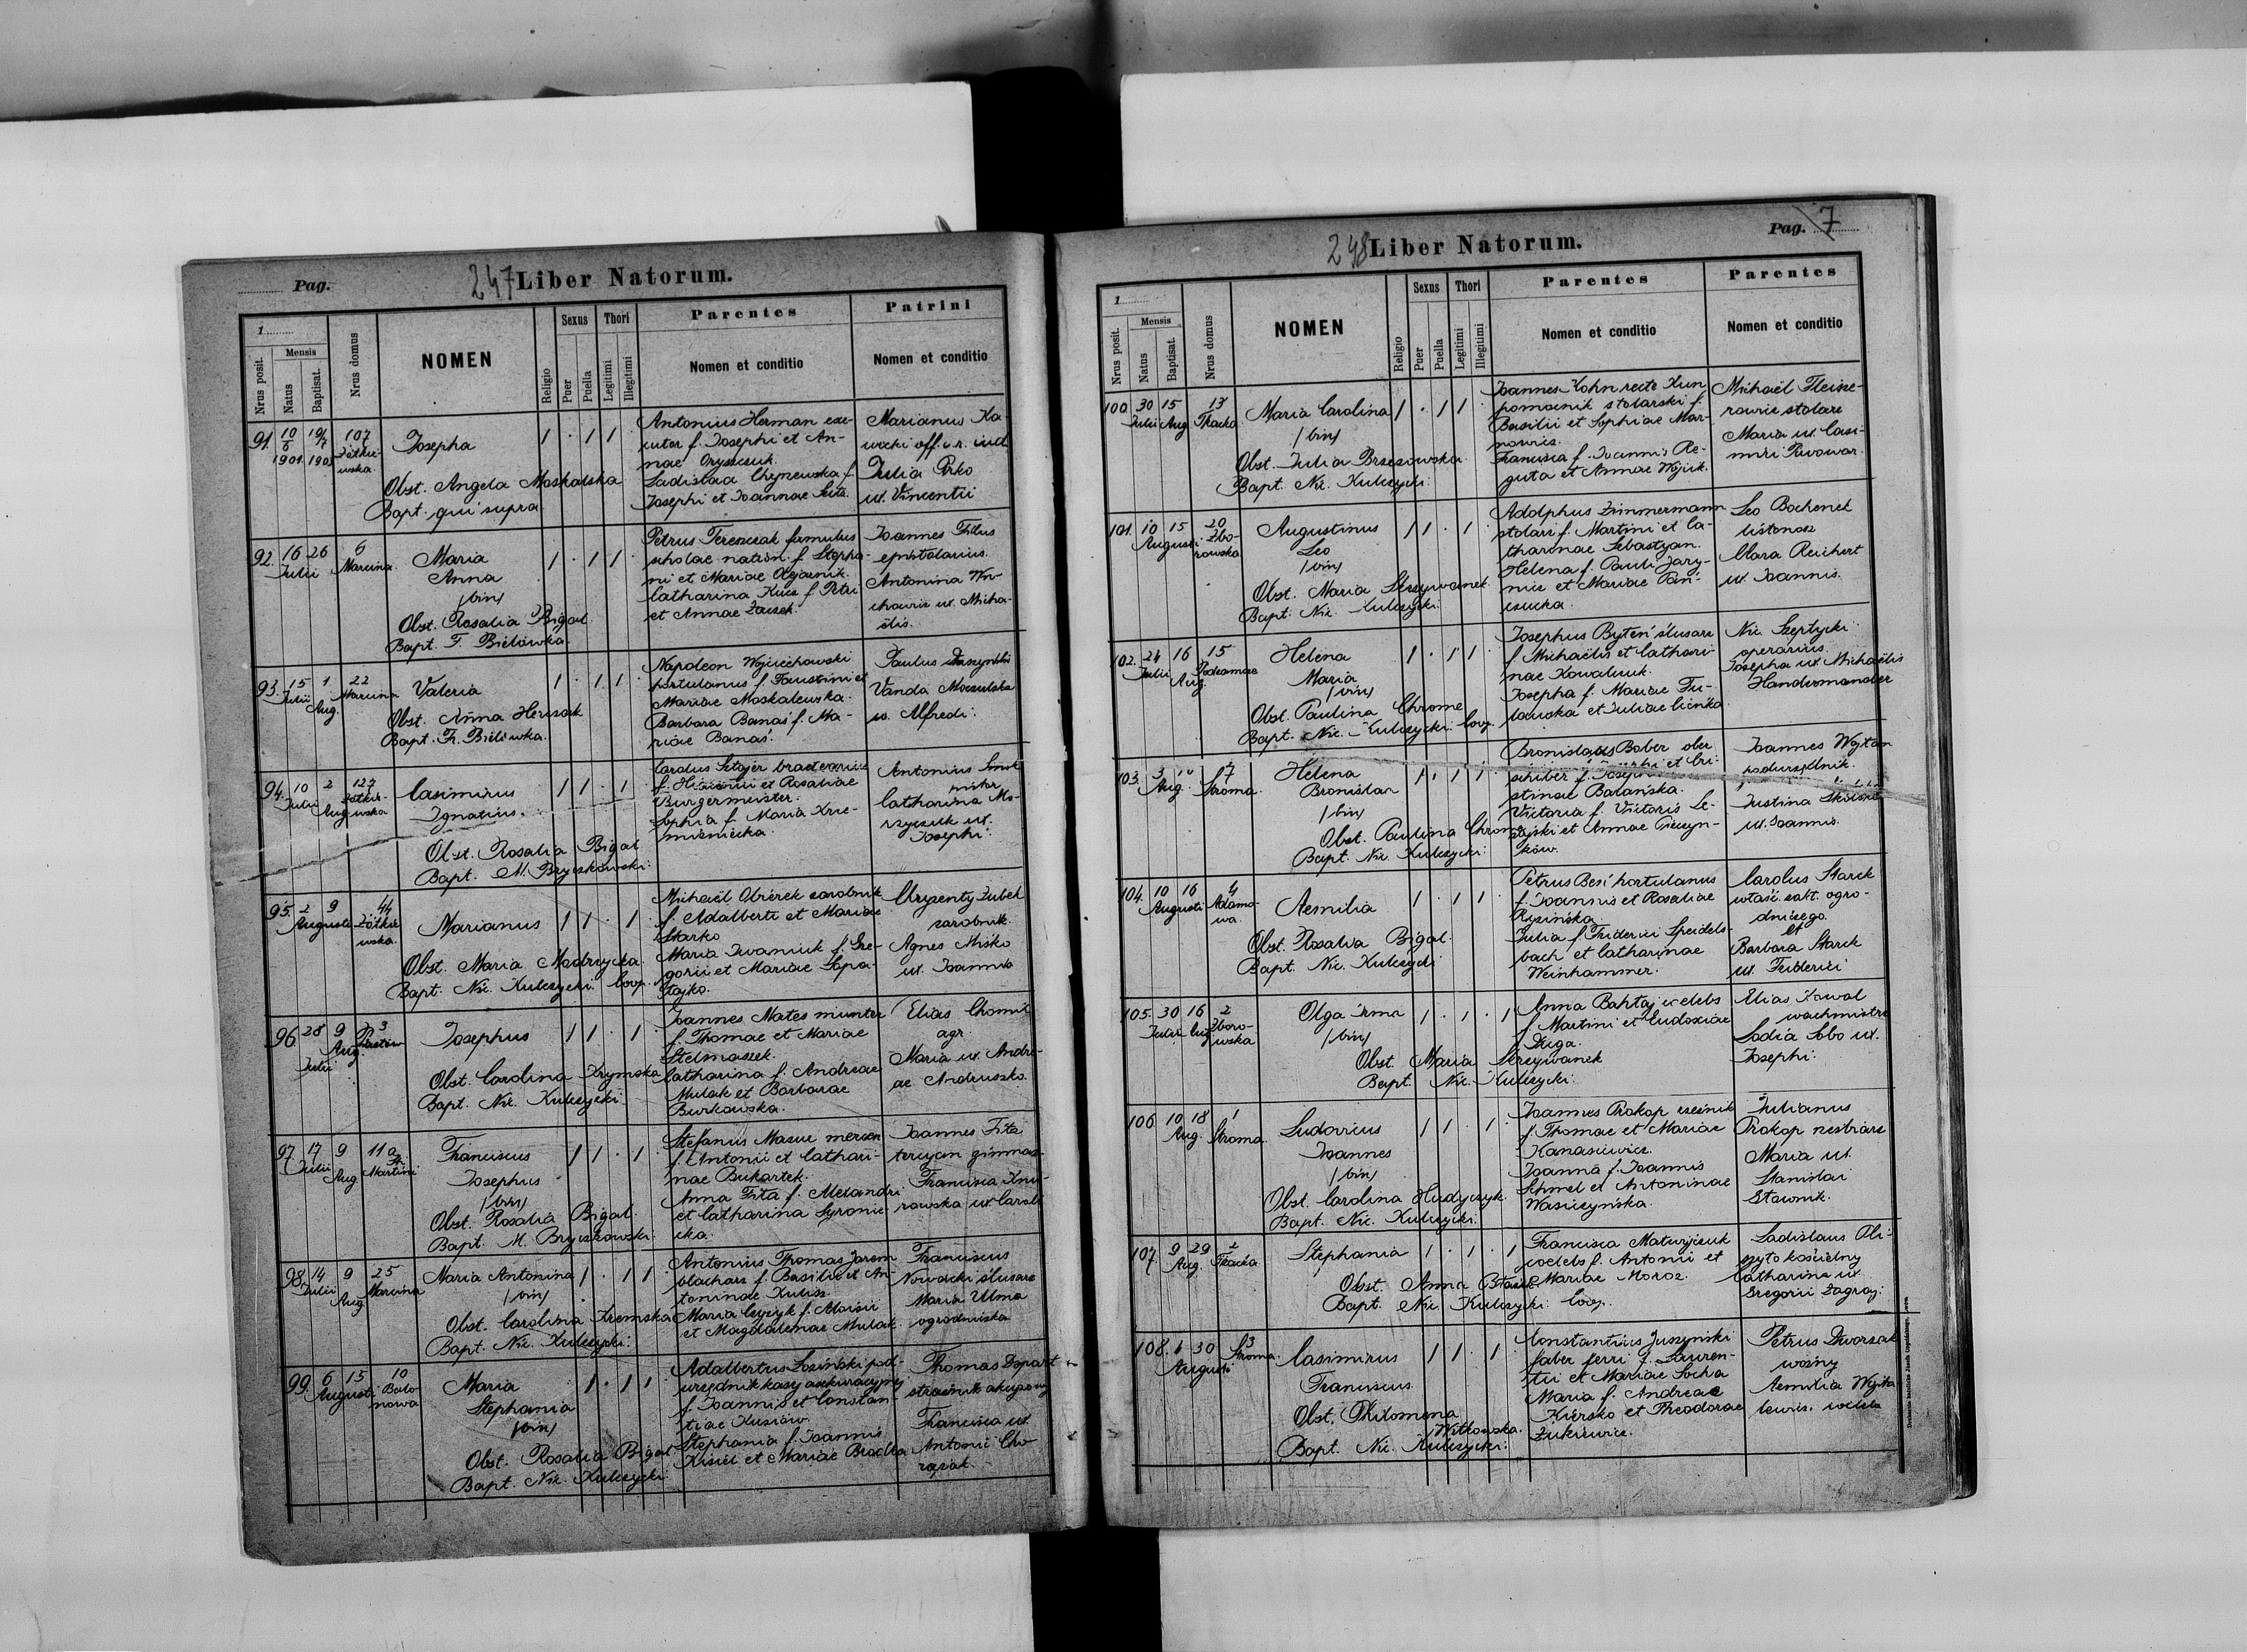 Pag.
247 Liber Natorum.
1
Nrus posit.
Mensis
Natus
Baptisat.
Nrus domus
NOMEN
Religio
Sexus
Puer
Puella
Thori
Legitimi
Illegitimi
Parentes
Nomen et conditio
Patrini
Nomen et conditio
91. 10/5 1901. 19/7 1903 107 Żółkie-
wska
Josepha
Obst. Angela Moskalska
Bapt. qui supra
Antonius Herman exe-
cutor f. Josephi et An-
nae Oryszczuk.
Ladislaa f.
Josephi et Joannae
Marianus Ka-
wecki off. c. r. iud.
Julia Pirko
ux. Vincentii
92. 16 26 Julii 6 Marcina
Maria
Anna
/bin/
Obst. Rosalia Bigal
Bapt. F. Bielówka
Petrus Tereszczak famulus
scholae nation. f. Stepha-
ni et Mariae Olejarnik.
Catharina Kucz f. Petri
et Annae
Joannes Fillus
epistolarius.
Antonina Wa-
ux. Micha-
ëlis.
93. 15 Julii 1 Aug. 22 Marcina
Valeria
Obst. Anna Herczak
Bapt. Fr. Bielówka.
Napoleon Wojciechowski
hortulanus f. Faustini et
Mariae Moskalewska.
Barbara Banaś f. Ma-
riae Banaś.
Paulus Daszyński
Vanda
ux. Alfredi.
94. 10 Julii 2 Aug. 127 Żółkie-
wska
Casimirus
Ignatius.
Obst. Rosalia Bigal
Bapt. M. Bryczkowski:
Carolus Stajer
f. et Rosaliae
Burgermeister.
Sophia f. Maria Krze-
mieniecka.
Antonius
pistor
Catharina Mo-
ux.
Josephi.
95. 2 9 Augusti 44 Żółkie-
wska.
Marianus
Obst. Maria Modrzycka
Bapt. Nic. Kulczycki Coop.
Michaël Obiórek zarobnik
f. Adalberti et Mariae
Starko
Maria Iwaniuk f. Gre-
gorii et Mariae Sapa-
stajko.
Chryzenty Zubek
zarobnik.
Agnes Miśko
ux. Joannis
96. 28 Julii 9 Aug. 3 Piastów
Josephus
Obst. Carolina Krymska
Bapt. Nic. Kulczycki
Joannes Mates
f. Thomae et Mariae
Stelmaszek.
Catharina f. Andreae
Mulak et Barbarae
Burkowska.
Elias Chomik
agr.
Maria ux. Andre-
ae Andruszko.
97. 17 Julii 9 Aug. 11a Martini
Franciscus
Josephus
/bin/
Obst. Rosalia Bigal.
Bapt. M. Bryczkowski.
Stefanus Mazur
f. Antonii et Cathari-
nae Bukartek.
Anna Fita f. Alexandri
et Catharina Syronic-
cka.
Joannes Fita
tercyan gimnaz.
Francisca
ux. Caroli
98. 14 Julii 9 Aug. 25 Marcina
Maria Antonina
/bin/
Obst. Carolina Kremska
Bapt. Nic. Kulczycki:
Antonius Thomas Jarem
blacharz f. Basilii et An-
toninae Kulisz.
Maria Czyżyk f. Aloisii
et Magdalenae Mulak.
Franciscus
Nowacki ślusarz
Maria Ulma
ogrodniczka
99. 6 15 Augusti 10 Balo-
nowa
Maria
Stephania
/bin/
Obst. Rosalia Bigal
Bapt. Nic. Kulczycki.
Adalbertus Łoziński pod-
urzędnik kasy asekuracyjnej
f. Joannis et Constan
tiae Kusiów.
Stephania f. Joannis
Kisiel et Mariae Brodka
Thomas Depart
strażnik akcyzowy
Francisca ux.
Antonii Cho
rążak.
Pag. 7
248 Liber Natorum.
1
Nrus posit.
Mensis
Natus
Baptisat.
Nrus domus
NOMEN
Religio
Sexus
Puer
Puella
Thori
Legitimi
Illegitimi
Parentes
Nomen et conditio
Parentes
Nomen et conditio
100. 30 Julii 15 Aug 13 Tkacka
Maria Carolina
/bin/
Obst. Julia Brzezowska
Bapt. Nic. Kulczycki.
Joannes Kohn recte Kun
pomocnik stolarski f.
Basilii et Sophiae Mar-
nowicz.
Francisca f. Joannis Re-
guta et Annae Wójcik.
Michaël Fleisze-
rowicz stolarz
Maria ux. Casi-
miri Piwowar.
101. 10 15 Augusti 20 Zbo-
rowska
Augustinus
Leo
/bin/
Obst. Maria Skrzywanek.
Bapt. Nic. Kulczycki.
Adolphus Zimmermann
stolarz f. Martini et Ca-
tharinae Sebastyan.
Helena f. Pauli Jary-
micz et Mariae Pan-
czucka.
Leo Bochenek
listonosz
Clara Reichert
ux. Joannis.
102. 24 Julii 16 Aug. 15 Podzamcze
Helena
Maria
/bin/
Obst. Paulina Chrome
Bapt. Nic. Kulczycki. Coop.
Josephus Byteń ślusarz
f. Michaëlis et Cathari
nae Kowalczuk.
Josepha f. Mariae Tu-
et Juliae
Nic. Szeptycki
operarius.
Josepha ux. Michaëlis
Handermander
103. 3 Aug. 7 Stroma.
Helena
Bronislaa
/bin/
Obst. Paulina Chrome
Bapt. Nic. Kulczycki:
Bronislaus Bober ober
schiber f. Josephi et Cri-
stinae Balańska.
Victoria f. Victoris
et Annae
ków.
Joannes Wojtan
podurzędnik.
Justina
ux. Joannis.
104. 10 16 Augusti 4 Adamo-
wa.
Aemilia
Obst. Rosalia Bigal.
Bapt. Nic. Kulczycki
Petrus Beś hortulanus
f. Joannis et Rosaliae
Ryzińska
Julia f. Friderici Speidels-
bach et Catharinae
Weinhammer.
Carolus Starck
właśc. zakł. ogro-
dniczego.
et
Barbara Starck
ux. Friderici
105. 30 Julii 16 Aug 2 Zboro-
wska
Olga Irma
/bin/
Obst. Maria Skrzywanek
Bapt. Nic. Kulczycki.
Anna Bahtaj coelebs
f. Martini et Eudoxiae
Długa.
Elias Kowal
wachmistrz
Ladia Sobo ux.
Josephi.
106 10 18 Aug. 1 Stroma.
Ludovicus
Joannes
/bin/
Obst. Carolina Hudyczyk.
Bapt. Nic. Kulczycki.
Joannes Prokop rzeźnik
f. Thomae et Mariae
Kanasiewicz.
Joanna f. Joannis
Schmel et Antoninae
Wasiczyńska.
Julianus
Prokop
Maria ux.
Stanislai
Stawnik.
107 9 29 Aug. 2 Tkacka.
Stephania
Obst. Anna
Bapt. Nic. Kulczycki. Coop.
Francisca Matwyjczuk
coelebs f. Antonii et
Mariae Moroz.
Ladislaus Pli-
szyto kościelny
Catharina ux.
Gregorii Zagraj.
108. 6 30 Augusti 3 Stroma.
Casimirus
Franciscus.
Obst. Philomena
Witkowska.
Bapt. Nic. Kulczycki:
Constantius Juszyński
faber ferri f. Lauren-
tii et Mariae Socha
Maria f. Andreae
Kiersko et Theodorae
Żukiewicz.
Petrus Dworzak
woźny
Aemilia Wojta
lewicz. coelebs